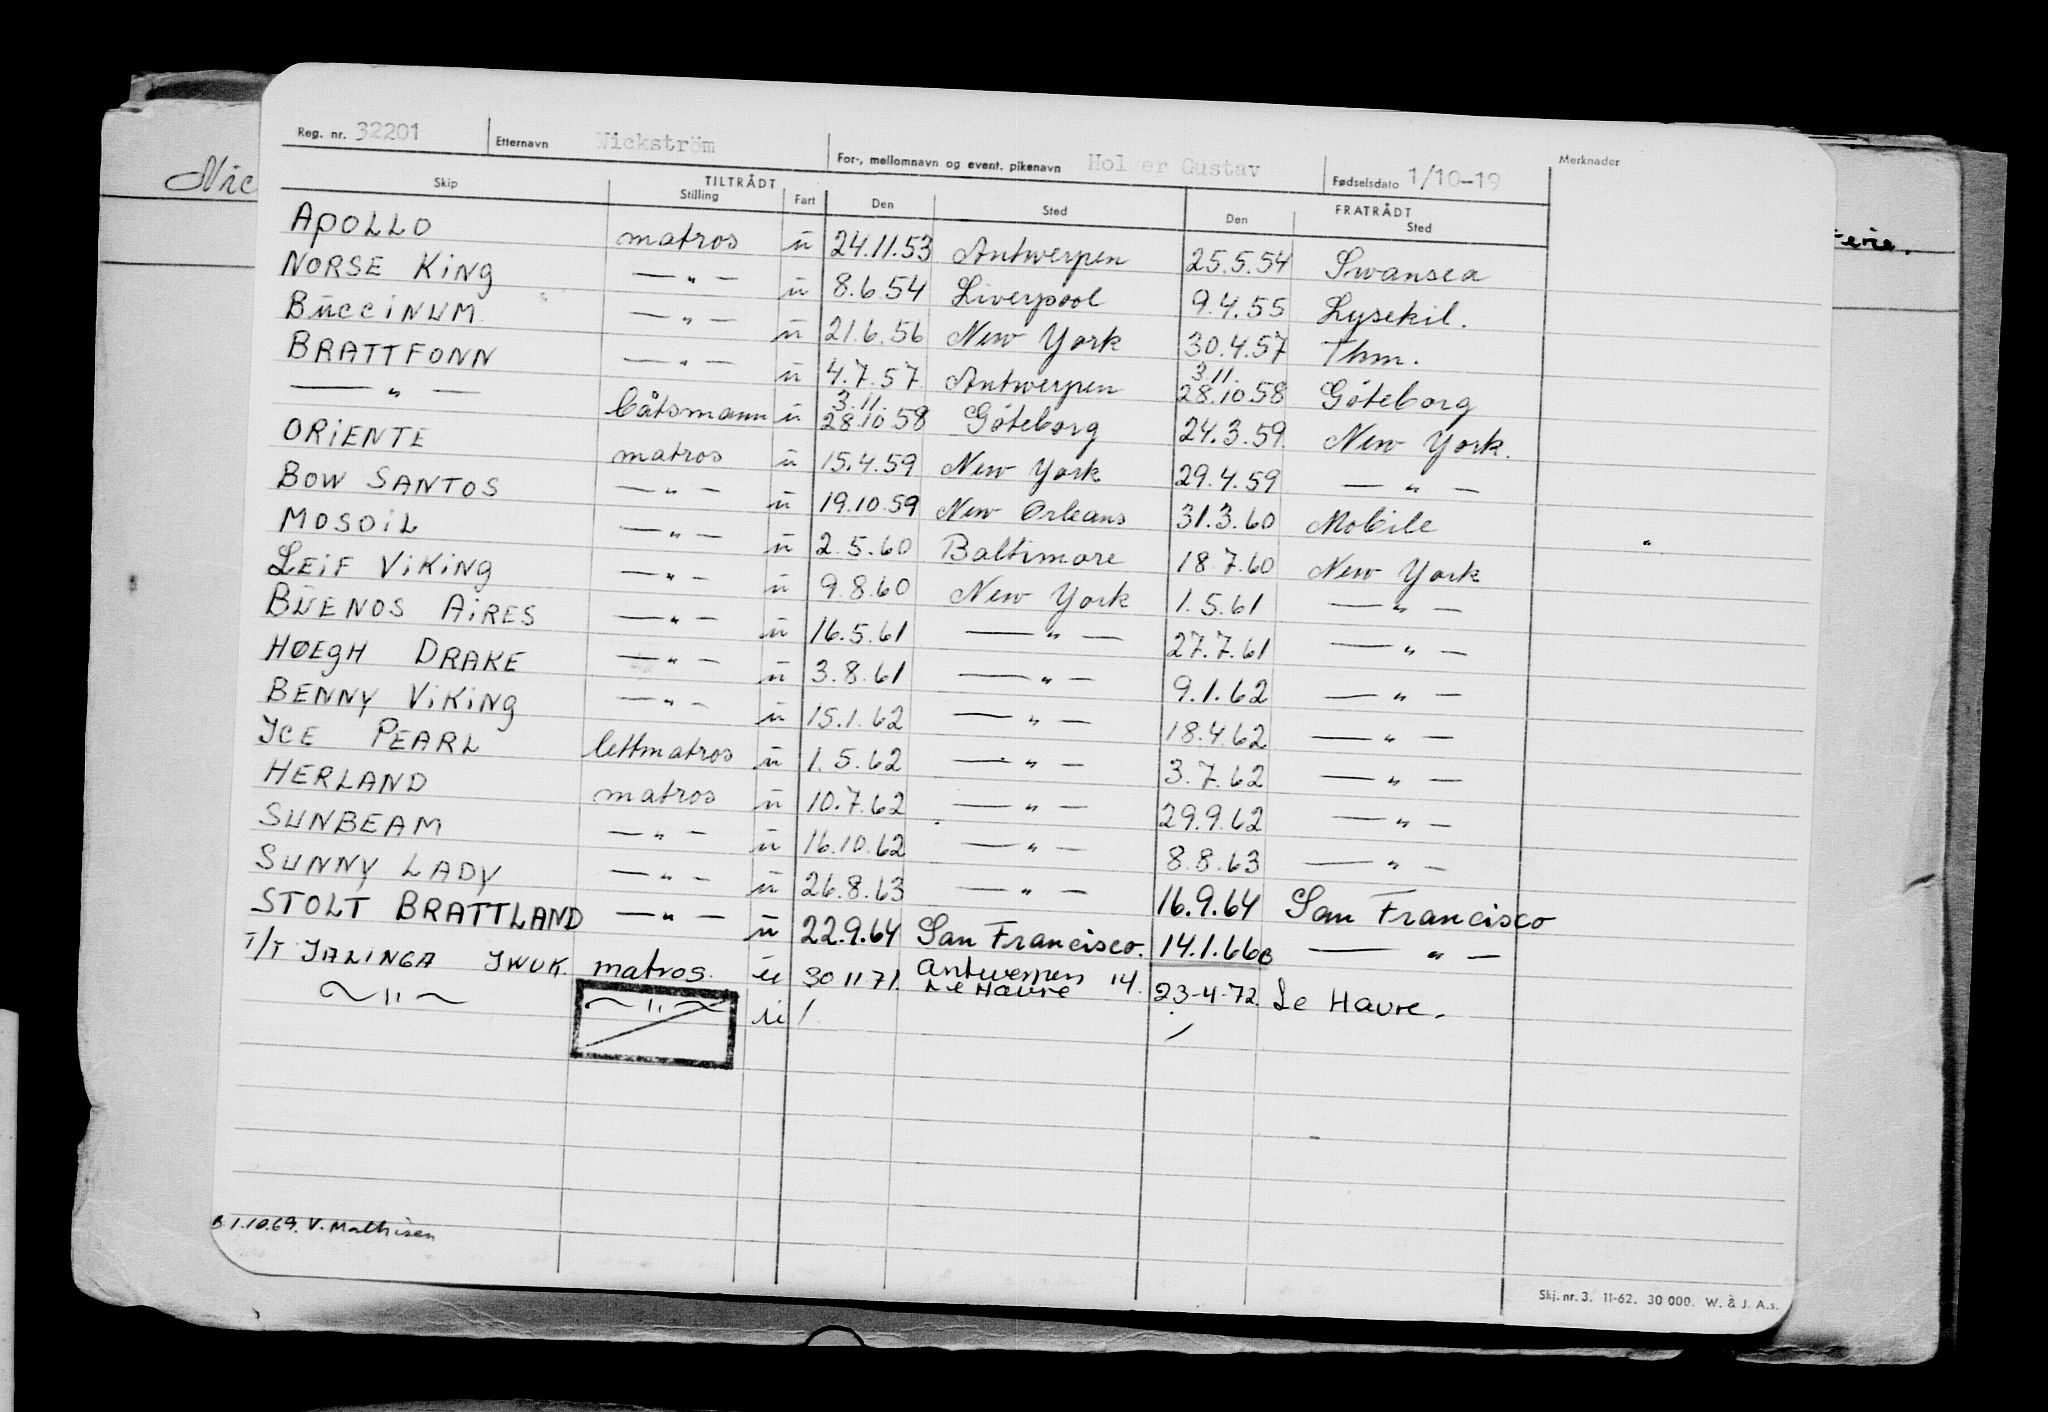 Reg. nr. 32201 Etternavn Wickström For-, mellomnavn og event. pikenavn Holger Gustav Fødselsdato 1/10-19 Merknader
Skip TILTRÅDT Stilling Fart Den Sted FRATRÅDT Den Sted
APOLLO matros u 24.11.53 Antwerpen 25.5.54 Swansea
NORSE KING — " — u 8.6.54 Liverpool 9.4.55 Lysekil.
BUCCINUM — " — u 21.6.56 New York 30.4.57 Thm.
BRATTFONN — " — u 4.7.57 Antwerpen 3.11. 28.10.58 Göteborg
— " — båtsmann u 3.11. 28.10.58 Göteborg 24.3.59 New York.
ORIENTE matros u 15.4.59 New York 29.4.59 — " —
BOW SANTOS — " — u 19.10.59 New Orleans 31.3.60 Mobile
MOSOIL — " — u 2.5.60 Baltimore 18.7.60 New York
LEIF VIKING — " — u 9.8.60 New York 1.5.61 — " —
BUENOS AIRES — " — u 16.5.61 — " — 27.7.61 — " —
HØEGH DRAKE — " — u 3.8.61 — " — 9.1.62 — " —
BENNY VIKING — " — u 15.1.62 — " — 18.4.62 — " —
ICE PEARL lettmatros u 1.5.62 — " — 3.7.62 — " —
HERLAND matros u 10.7.62 — " — 29.9.62 — " —
SUNBEAM — " — u 16.10.62 — " — 8.8.63 — " —
SUNNY LADY — " — u 26.8.63 — " — 16.9.64 San Francisco
STOLT BRATTLAND — " — u 22.9.64 San Francisco. 14.1.66 — " —
T/T JALINGA JWUK. matros. u 30 11 71. Antwerpen Le Havre 14. 23-4-72. Le Havre.
— " — — " — u /
1.10.69. V. Mathisen
Skj. nr. 3. 11-62. 30 000. W. & J. A.s.
Nic
erie.